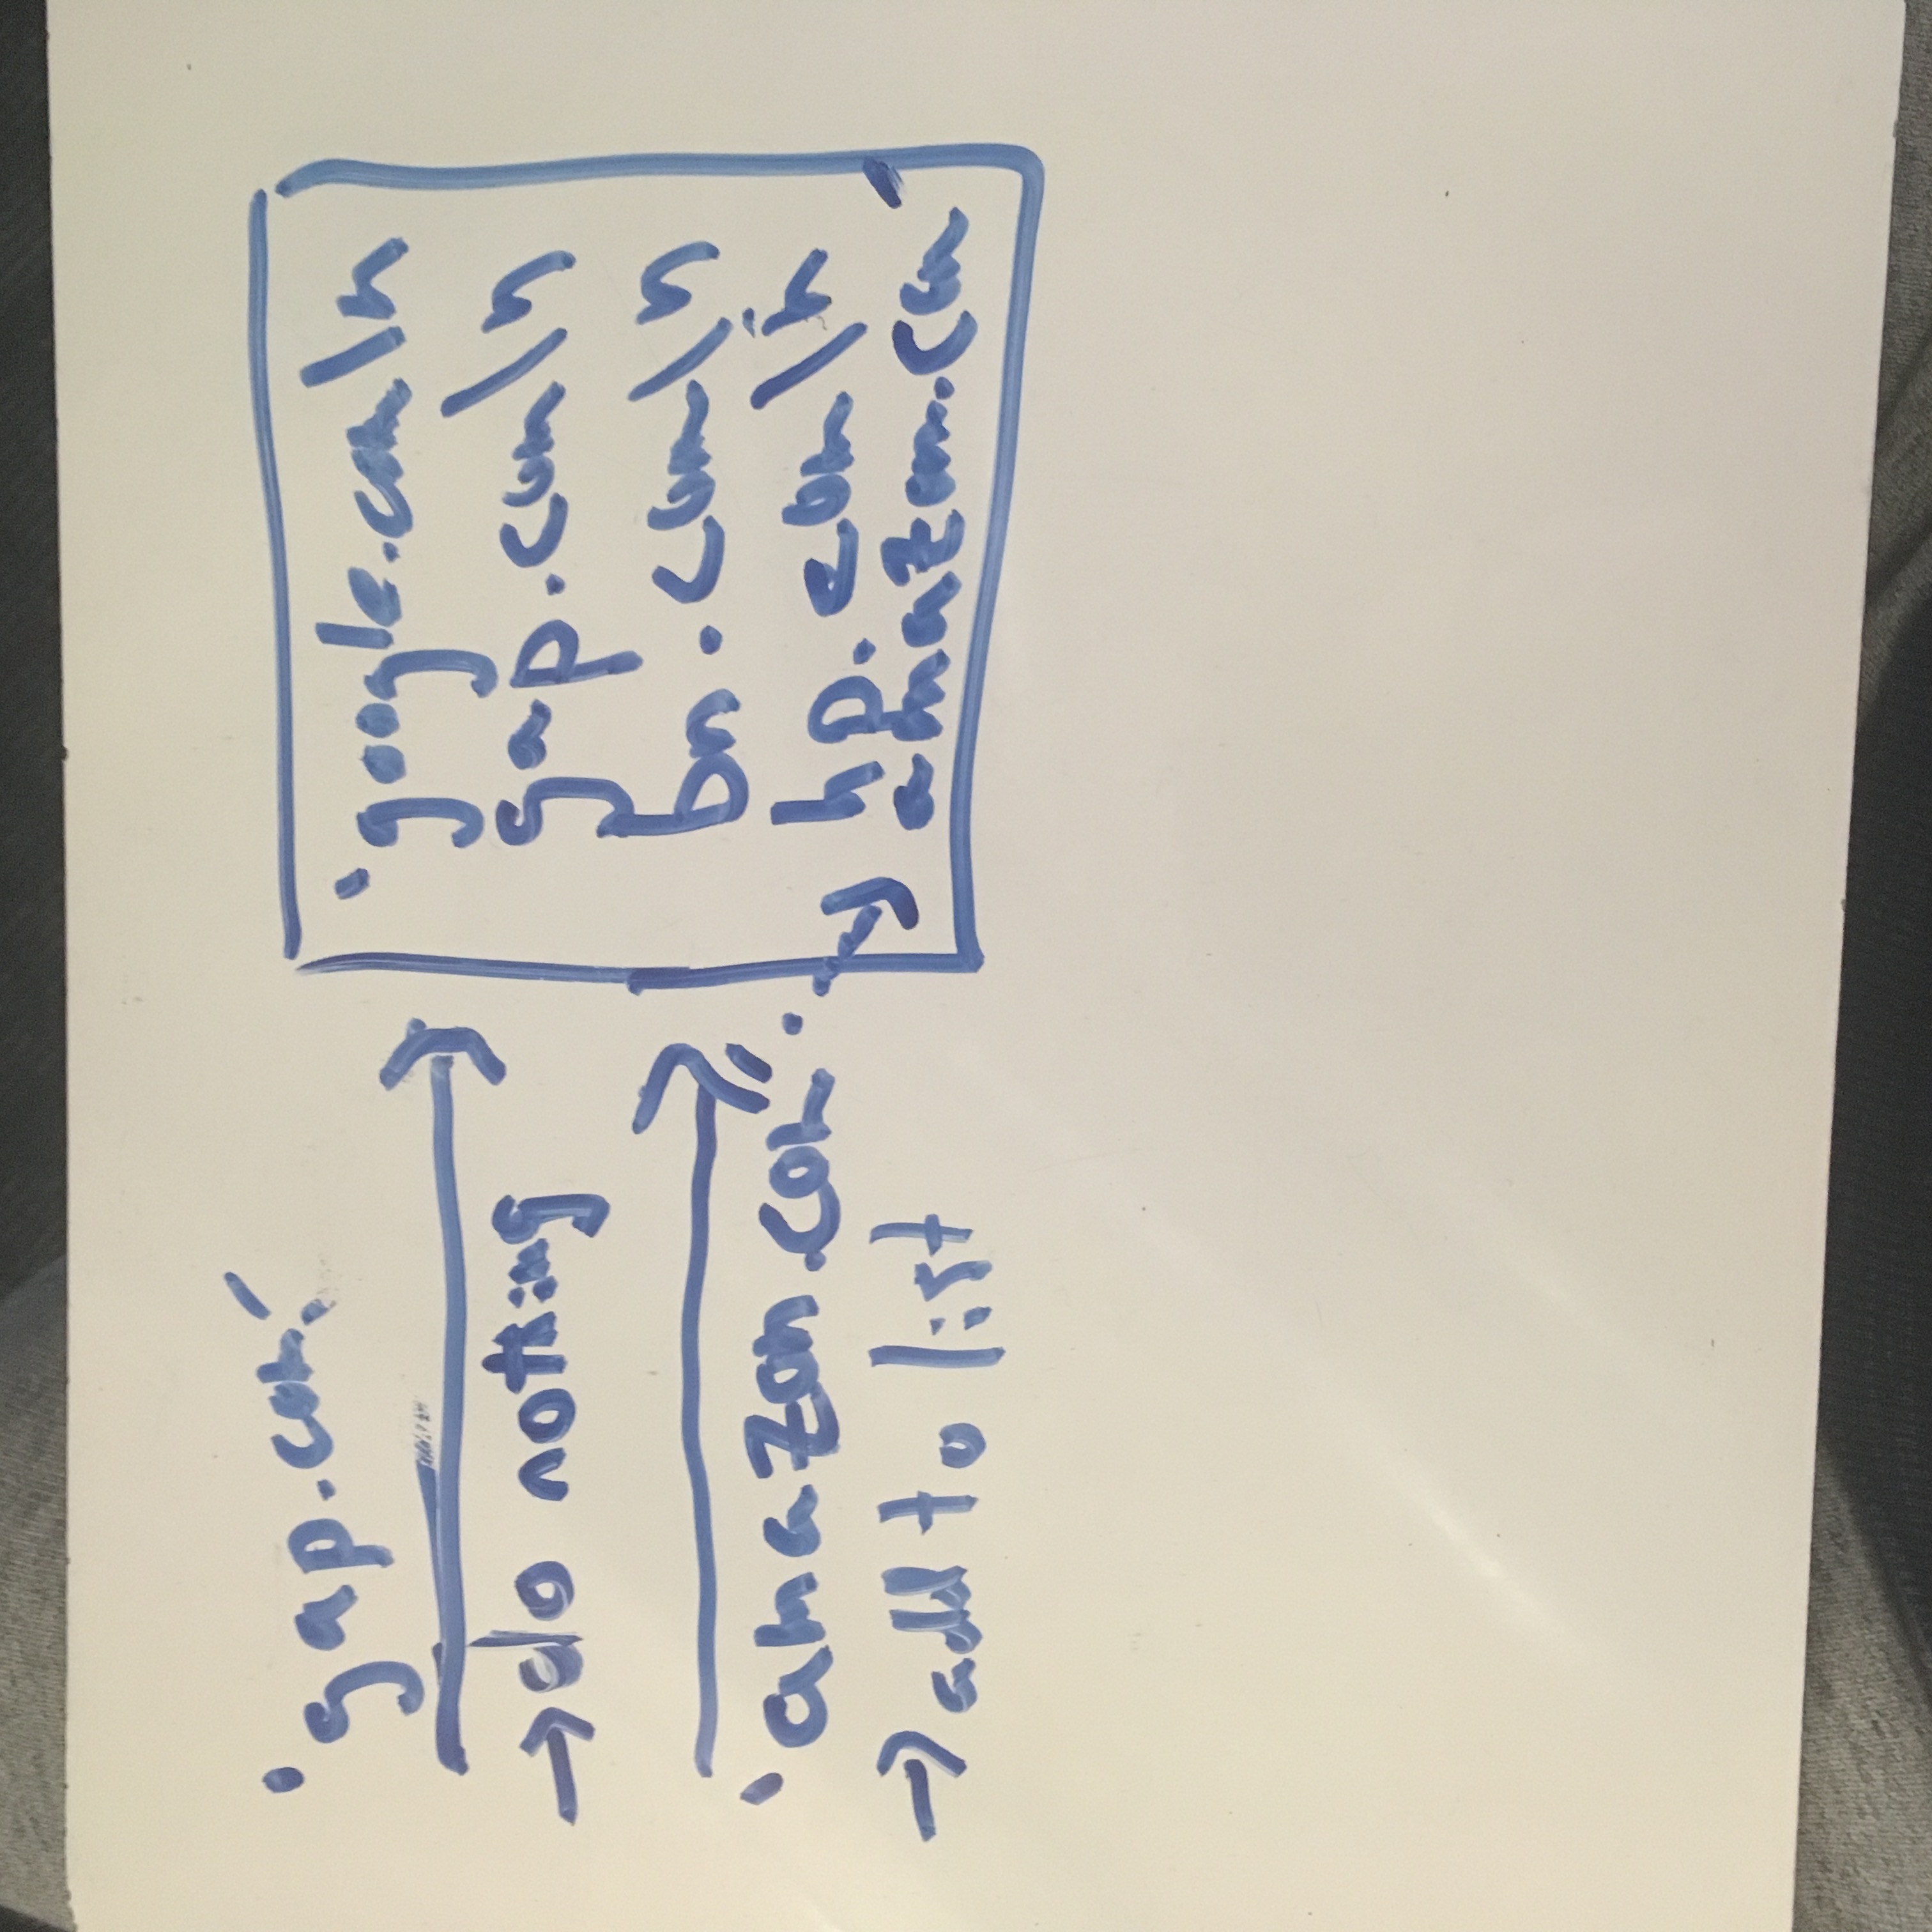 'gap.com'
→do nothing
'amazon.com'
→add to list
'google.com\n
gap.com\n
bn.com\n
hp.com\n
amazon.com'